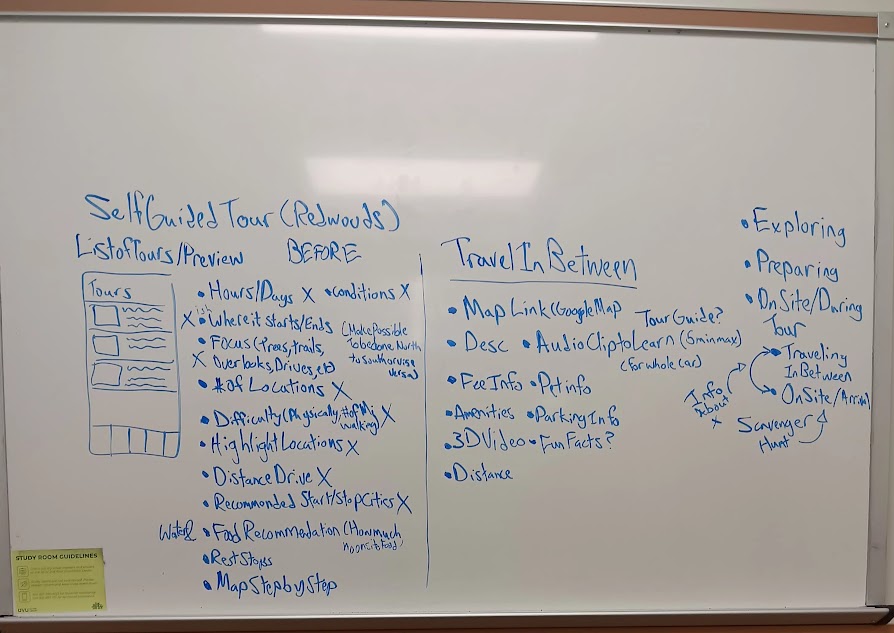 Self Guided Tour (Redwoods)
List of Tours/Preview BEFORE
Tours
• Hours/Days X • conditions X
X • Where it starts/Ends (Make Possible
to be done North
to South or vise
versa)
• Focus (Trees, trails,
X Overlooks, Drives, etc)
• # of Locations X
• Difficulty (Physically, # of Mi X
walking)
• Highlight Locations X
• Distance Drive X
• Recommended Start/Stop Cities X
Water& • Food Recommendation (How much
no oncite food)
• Rest Stops
• Map Step by Step
Travel In Between
• Map Link (Google Map
Tour Guide?
• Desc • Audio Clip to Learn (5min max)
(for whole car)
• Fee Info • Pet info
• Amenities • Parking Info
• 3D Video • Fun Facts?
• Distance
• Exploring
• Preparing
• OnSite/During
Tour
• Traveling
InBetween
• OnSite/Arrival
Info
About
x
Scavenger
Hunt
STUDY ROOM GUIDELINES
UVU